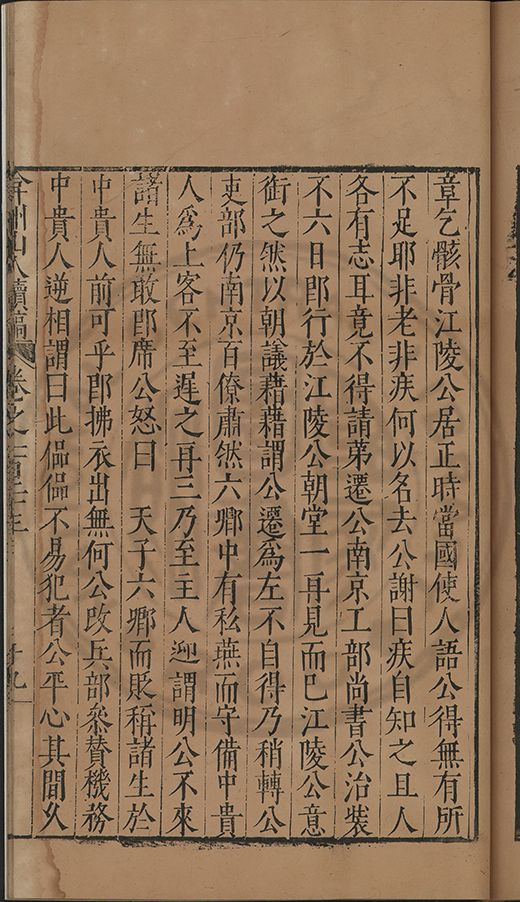 章乞骸骨江陵公居正時當國使人語公得無有所
不足耶非老非疾何以名去公謝曰疾自知之且人
各有志耳竟不得請第遷公南京工部尚書公治裝
不六日卽行於江陵公朝堂一再見而巳江陵公意
銜之然以朝議藉藉謂公遷爲左不自得乃稍轉公
吏部仍南京百僚肅然六卿中有私燕而守備中貴
人爲上客不至遲之再三乃至主人迎謂明公不來
諸生無敢卽席公怒曰　天子六卿而貶稱諸生於
中貴人前可乎卽拂衣出無何公改兵部叅賛機務
中貴人逆相謂曰此偘偘不易犯者公平心其間久
弇州山人續稿　卷之一百三十三　十九